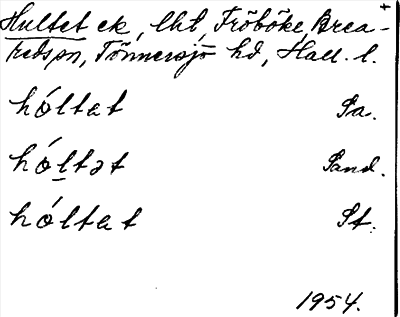 Hultet ek, lht, Fröböke, Brea-
redspn, Tönnersjö hd, Hall. l.
hóltat Sa.
hóltət Sand.
hóltat St.
1954.